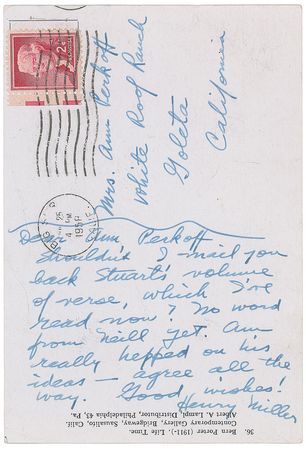 2¢
Mrs. Ann Perkoff
White Roof Ranch
Goleta
California
25
4 PM
1958
Dear Ann Perkoff
Shouldn't I mail you
back Stuart's volume
of verse, which I've
read now? No word
from Neill yet. Am
really hepped on his
ideas — agree all the
way. Good wishes!
Henry Miller
36. Bern Porter (1911-). Life Time.
Contemporary Gallery, Bridgeway, Sausalito, Calif.
Albert A. Lampl, Distributor, Philadelphia 43, Pa.